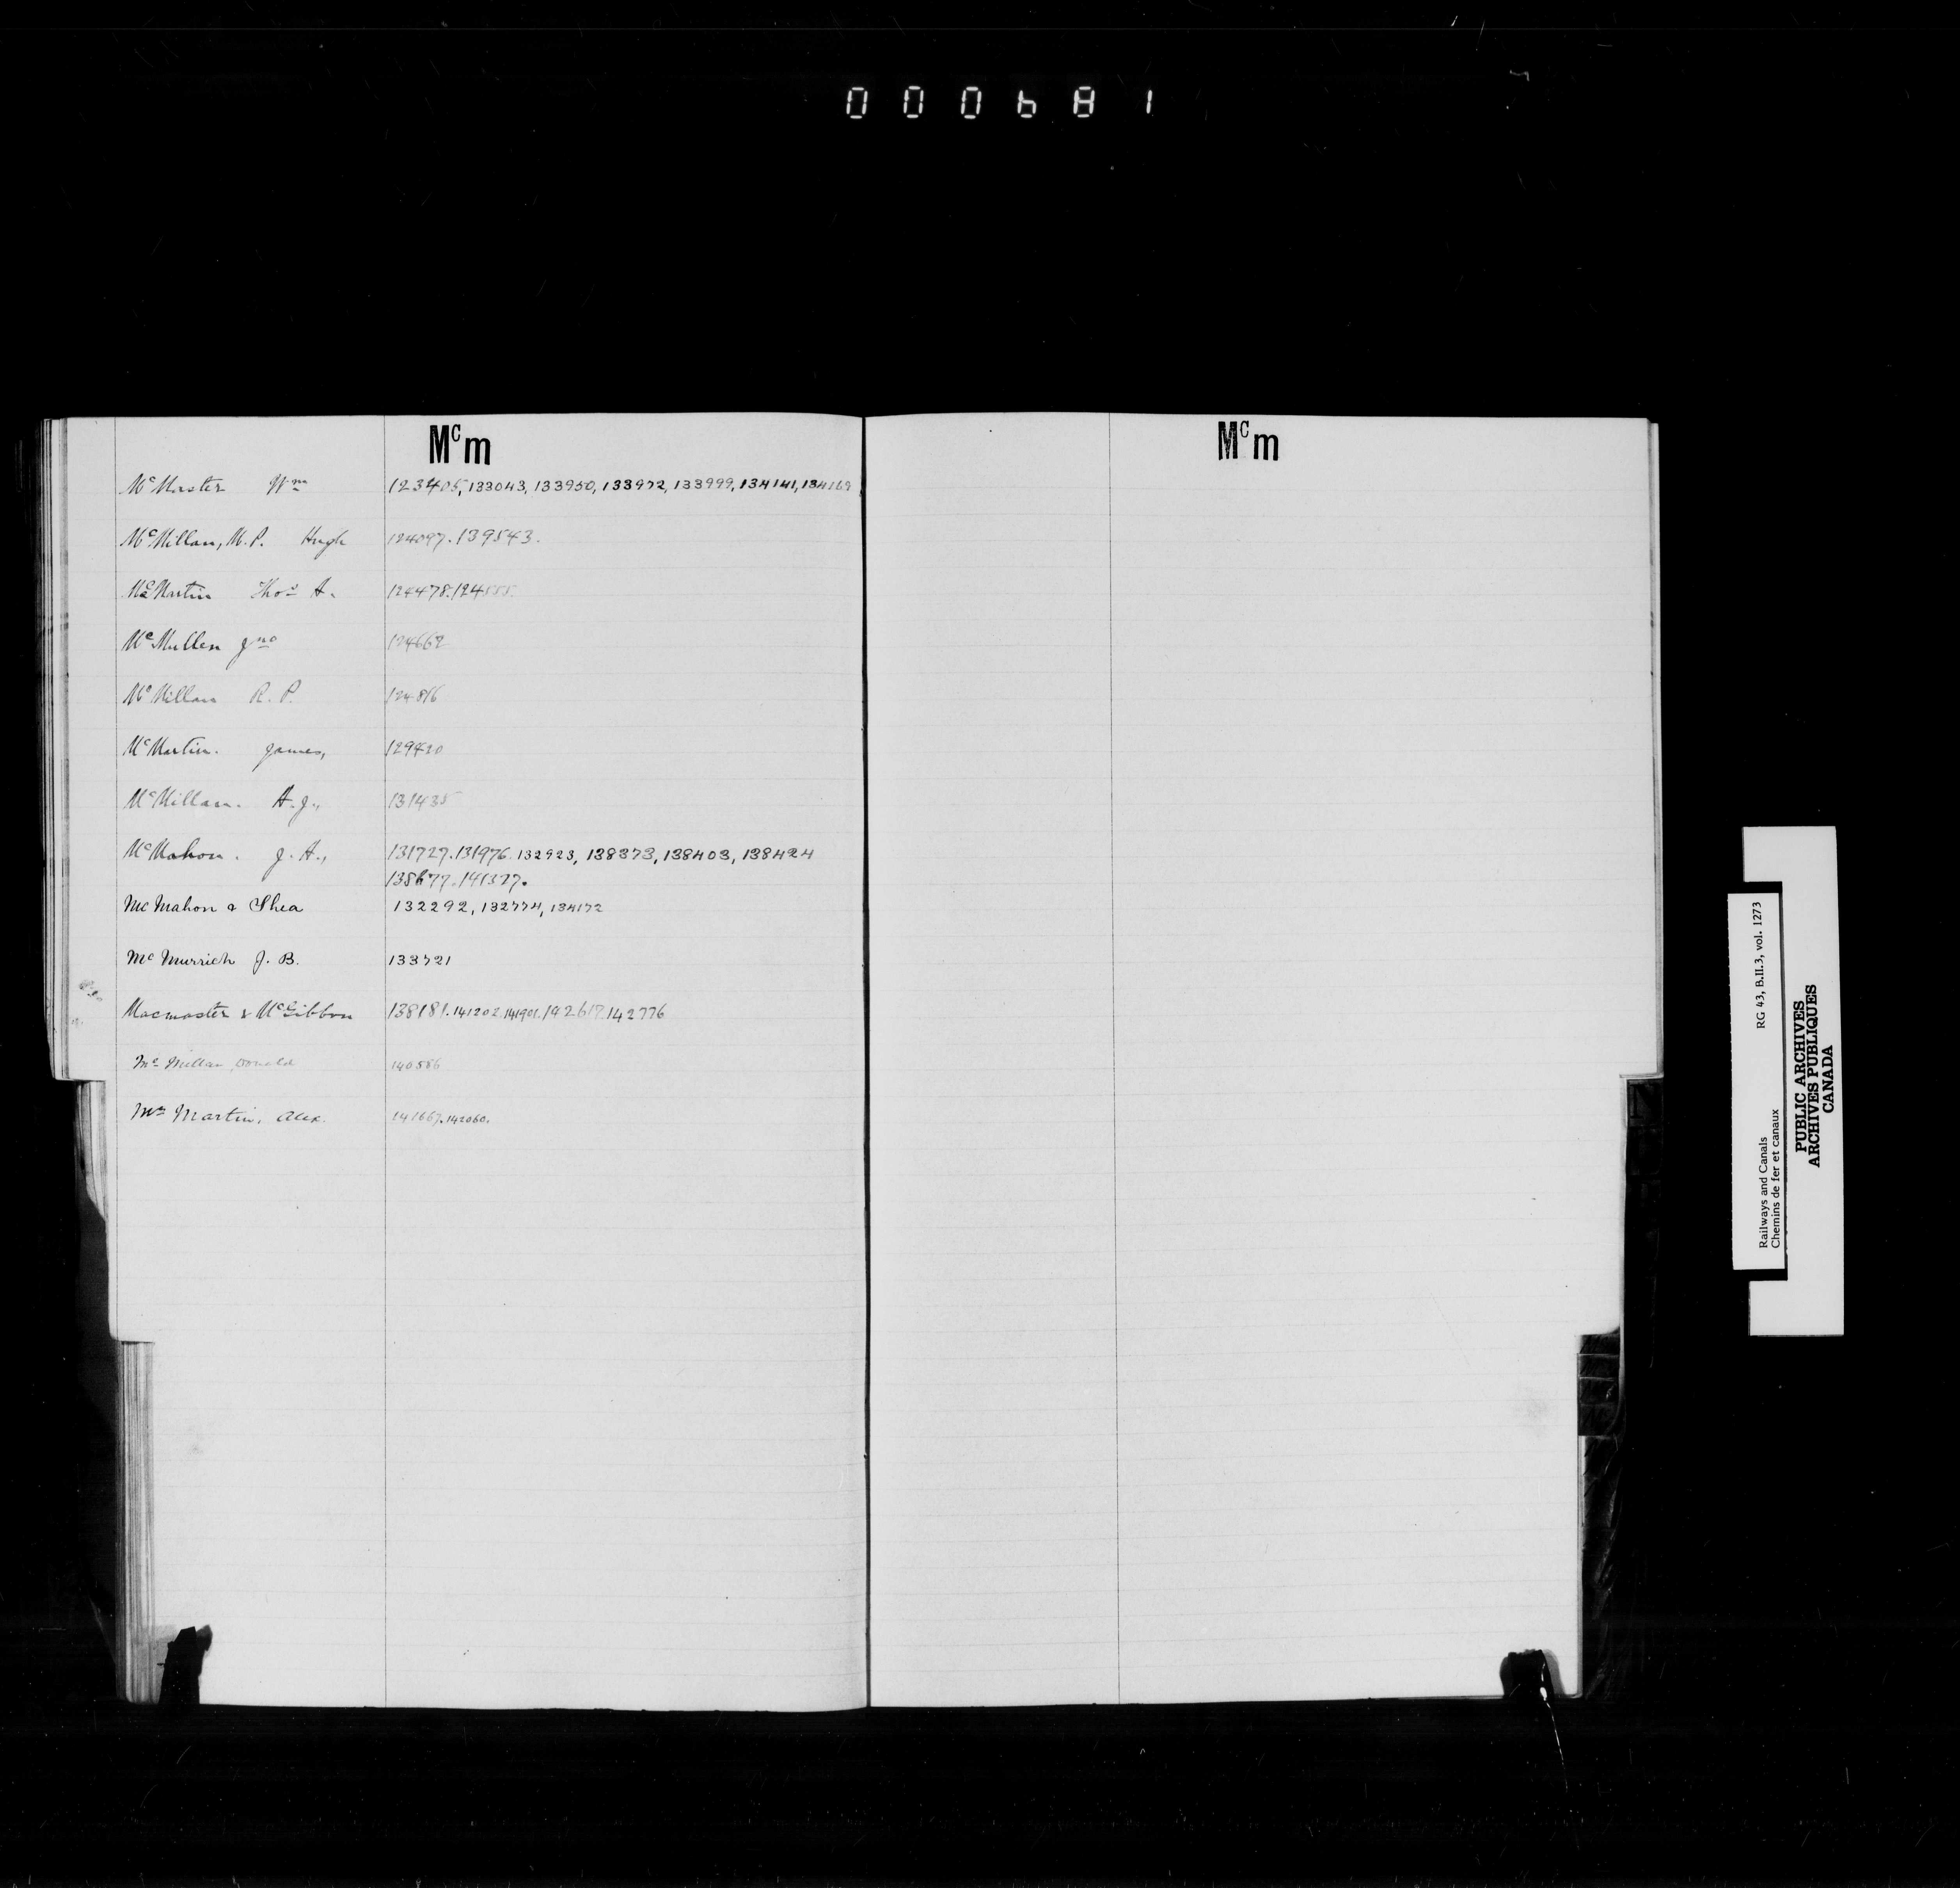 000681
Mcm
McMaster Wm 123405, 133043, 133950, 133972, 133999, 134141, 134169
McMillan, M.P. Hugh 124097. 139543.
McMartin Thos A. 124478. 124555.
McMullen Jno 124662
McMillan R. P. 124816
McMartin. James, 129420
McMillan. A.J., 131435
McMahon. J. A., 131727. 131976. 132923, 138373, 138403, 138424
138677. 141327.
McMahon & Shea 132292, 132774, 134172
McMurrich J. B. 133721
Macmaster & McGibbon 138181. 141202. 141901. 142617. 142776
McMillan, Donald 140586
McMartin, Alex. 141667. 142060.
Mcm
Railways and Canals RG 43, B.II.3, vol. 1273
Chemins de fer et canaux
PUBLIC ARCHIVES
ARCHIVES PUBLIQUES
CANADA